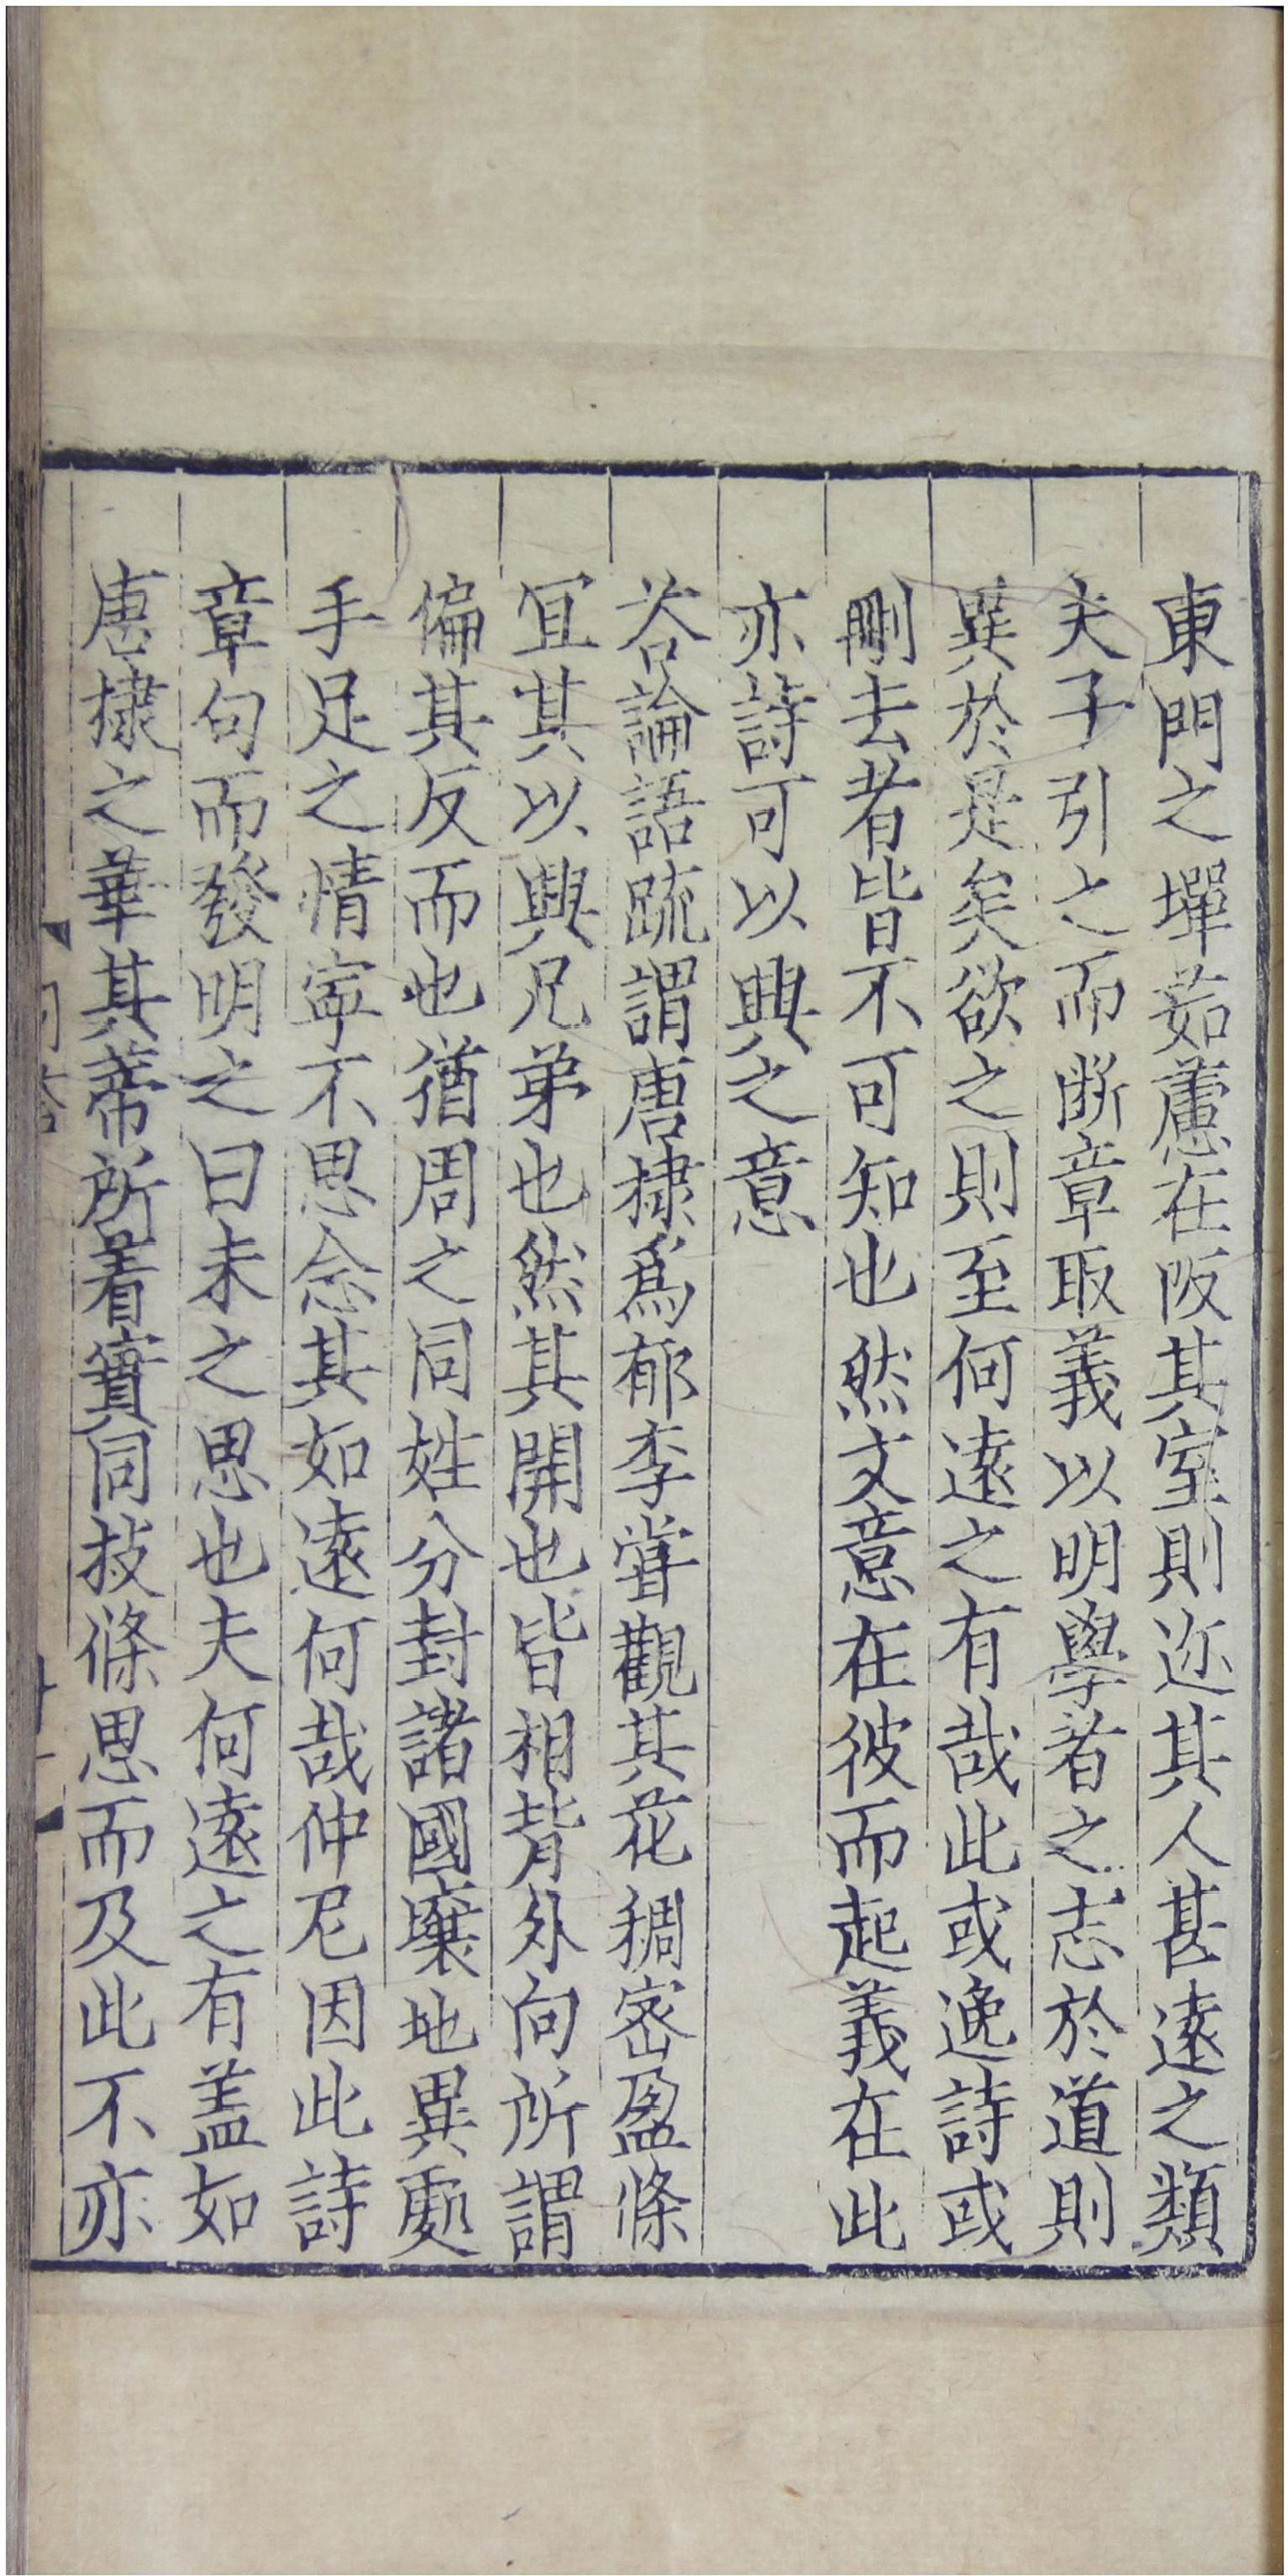 東門之墠茹藘在阪其室則迩其人甚遠之類
夫子引之而断章取義以明學者之志於道則
異於是矣欲之則至何遠之有哉此或逸詩或
刪去者皆不可知也然文意在彼而起義在此
亦詩可以興之意
荅論語疏謂唐棣爲郁李甞觀其花稠宻盈條
冝其以興兄弟也然其開也皆相背外向所謂
偏其反而也猶周之同姓分封諸國壤地異處
手足之情寕不思念其如遠何哉仲尼因此詩
章句而發明之曰未之思也夫何遠之有盖如
唐棣之華其蒂所着實同枝條思而及此不亦